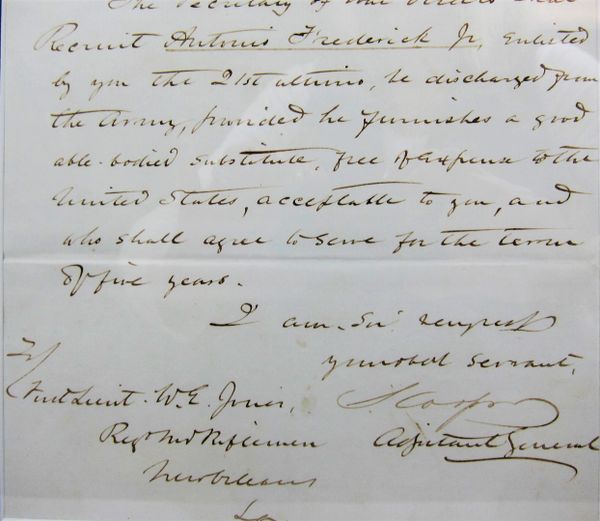 The Secretary of War directs that
Recruit Antonio Frederick Jr, enlisted
by you the 21st ultimo, be discharged from
the Army, provided he furnishes a good
able-bodied substitute, free of expense to the
United States, acceptable to you, and
who shall agree to serve for the term
of five years.
I am Sir respect
your obt servant,
S. Cooper
Adjutant General
First Lieut. W. E. Jones,
Regt Md Riflemen
New Orleans
La